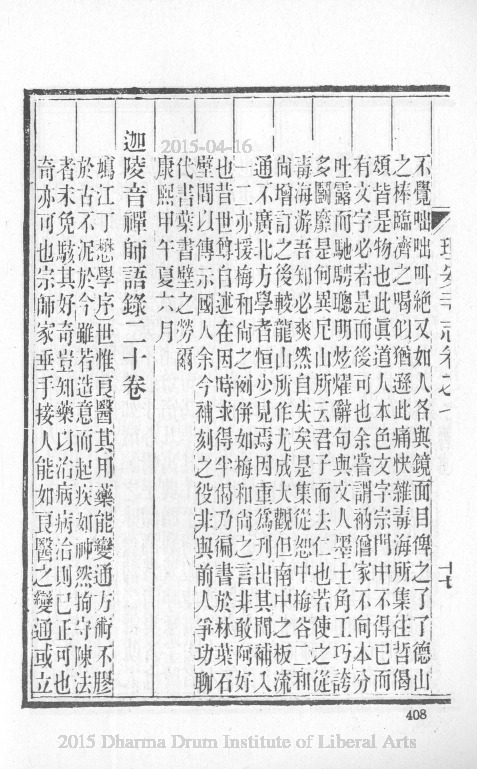 理安寺志卷之七 十七
不覺咄咄叫絕又如人各與鏡面目俾之了了德山
之棒臨濟之喝似猶遜此痛快雜毒海所集往哲偈
頌皆是物也此眞道人本色文字宗門中不得已而
有文字必若是而後可也余嘗謂衲僧家不向本分
吐露而馳騁聰明炫燿辭句與文人墨士角工巧誇
多鬭靡是何異尼山所云君子而去仁也若使之從
毒海游吾知必爽然自失矣是集從恕中梅谷二和
尚增訂之後較龍山所作尤成大觀但南中之板流
通不廣北方學者恒少見焉因重爲刊出其間補入
一二亦援梅和尚之例併如梅和尚之言非敢阿好
也昔世尊自述在因時求得半偈乃徧書於林葉石
壁間以傳示國人余今補刻之役非與前人爭功聊
代書葉書壁之勞爾
康熙甲午夏六月
迦陵音禪師語錄二十卷
鴻江丁懋學序世惟良醫其用藥能變通方術不膠
於古不泥於今雖若造意而起疾如神然拘守陳法
者未免駭其好奇豈知藥以治病病治則已正可也
奇亦可也宗師家垂手接人能如良醫之變通或立
408
2015-04-16
2015 Dharma Drum Institute of Liberal Arts